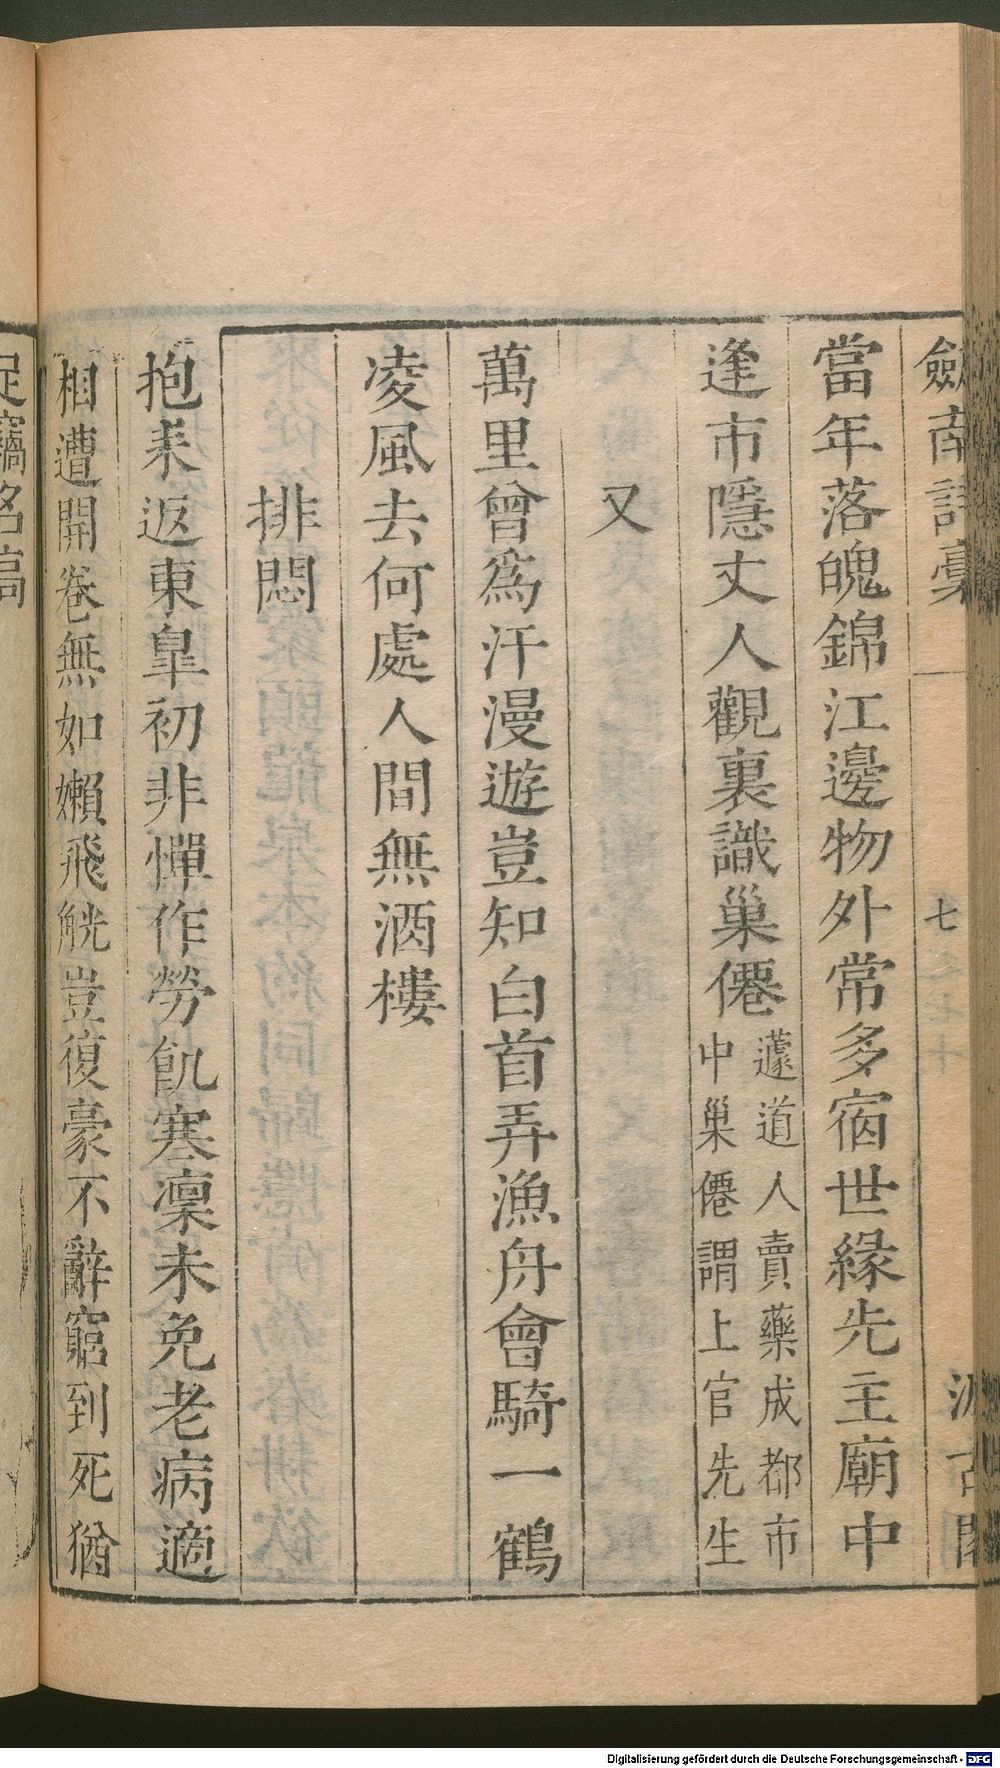 劍南詩稾
七
當年落魄錦江邊物外常多宿世緣先主廟中
逢市隱丈人觀裏識巢僊
蘧道人賣藥成都市
中巢僊謂上官先生
又
萬里曾爲汗漫遊豈知白首弄漁舟會騎一鶴
凌風去何處人間無酒樓
排悶
抱耒返東臯初非憚作勞飢寒凜未免老病適
相遭開卷無如嬾飛觥豈復豪不辭窮到死猶
Digitalisierung gefördert durch die Deutsche Forschungsgemeinschaft - DFG